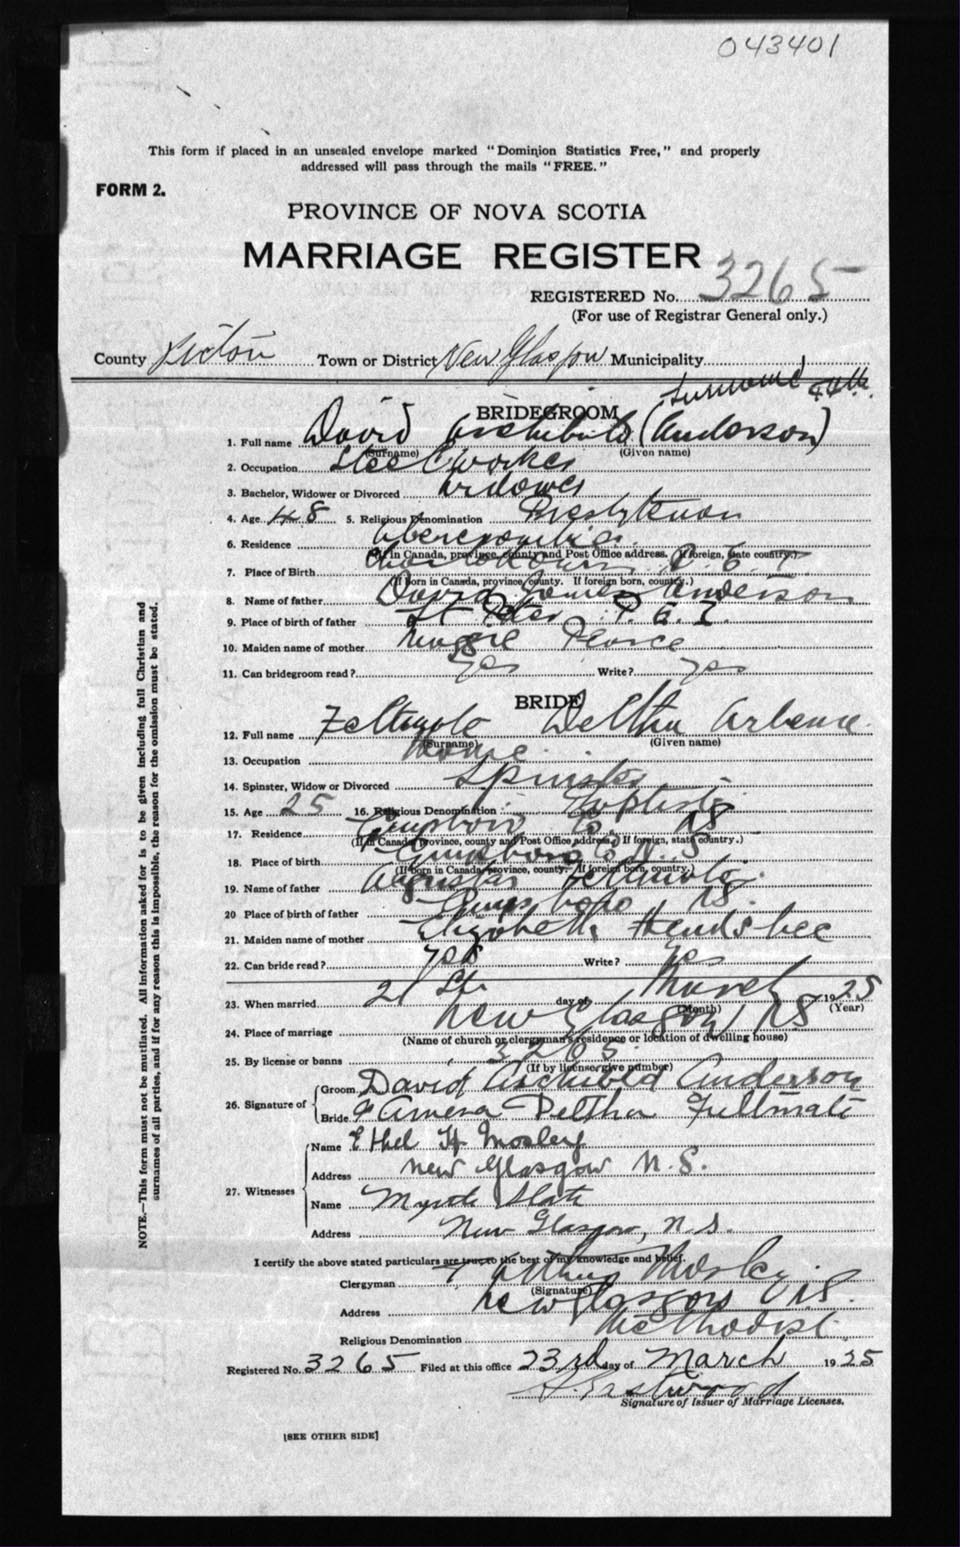 043401
This form if placed in an unsealed envelope marked "Dominion Statistics Free," and properly
addressed will pass through the mails "FREE."
FORM 2.
PROVINCE OF NOVA SCOTIA
MARRIAGE REGISTER
REGISTERED No. 3265
(For use of Registrar General only.)
County Pictou Town or District New Glasgow Municipality
Surname
BRIDEGROOM
1. Full name David Archibald (Anderson)
(Surname) (Given name)
2. Occupation Steel worker
3. Bachelor, Widower or Divorced Widower
4. Age 48 5. Religious Denomination Presbyterian
6. Residence Abercrombie
(If in Canada, province, county and Post Office address. If foreign, state country.)
7. Place of Birth Charlottetown P. E. I.
(If born in Canada, province, county. If foreign born, country.)
8. Name of father David James Anderson
9. Place of birth of father St Peters P. E. I.
10. Maiden name of mother Pearce
11. Can bridegroom read? yes Write? yes
BRIDE
12. Full name Feltmate Deltha
(Surname) (Given name)
13. Occupation Home
14. Spinster, Widow or Divorced Spinster
15. Age 25 16. Religious Denomination Baptist
17. Residence Guysboro Co. NS
(If in Canada, province, county and Post Office address. If foreign, state country.)
18. Place of birth Guysboro Co N. S
(If born in Canada, province, county. If foreign born, country.)
19. Name of father Augustas Feltmate
20 Place of birth of father Guysboro NS.
21. Maiden name of mother Elizabeth Hendsbee
22. Can bride read? yes Write? yes
23. When married 21 St. day of March 1925
(Month) (Year)
24. Place of marriage New Glasgow NS
(Name of church or clergyman's residence or location of dwelling house)
25. By license or banns 3265
(If by license, give number)
26. Signature of
Groom David Archibald Anderson
Bride Deltha Feltmate
27. Witnesses
Name Ethel H Mosley
Address New Glasgow N. S.
Name Myrtle Slate
Address New Glasgow, N. S.
I certify the above stated particulars are true to the best of my knowledge and belief.
Clergyman Arthur Mosley
(Signature)
Address New Glasgow N.S.
Religious Denomination Methodist.
Registered No. 3265 Filed at this office 23rd day of March 1925
Eastwood
Signature of Issuer of Marriage Licenses.
[SEE OTHER SIDE]
NOTE.—This form must not be mutilated. All information asked for is to be given including full Christian and
surnames of all parties, and if for any reason this is impossible, the reason for the omission must be stated.